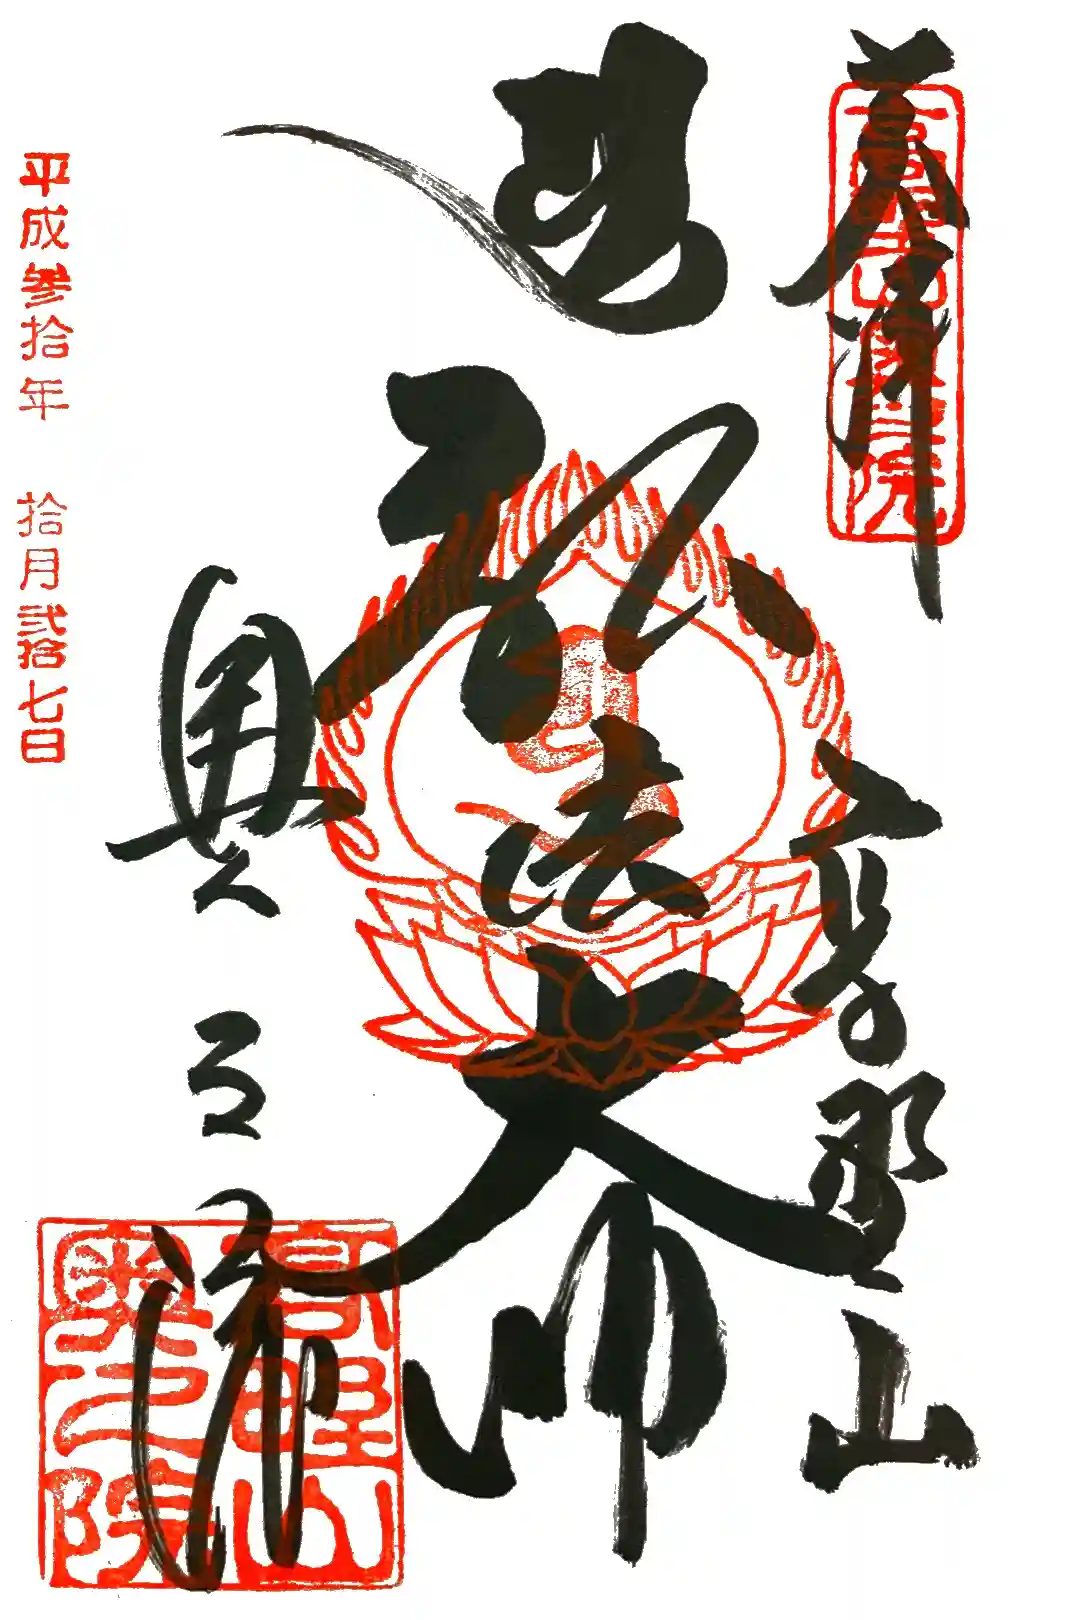 奉拝
高野山
弘法大師
奥之院
高野山
奥之院
平成参拾年 拾月弐拾七日